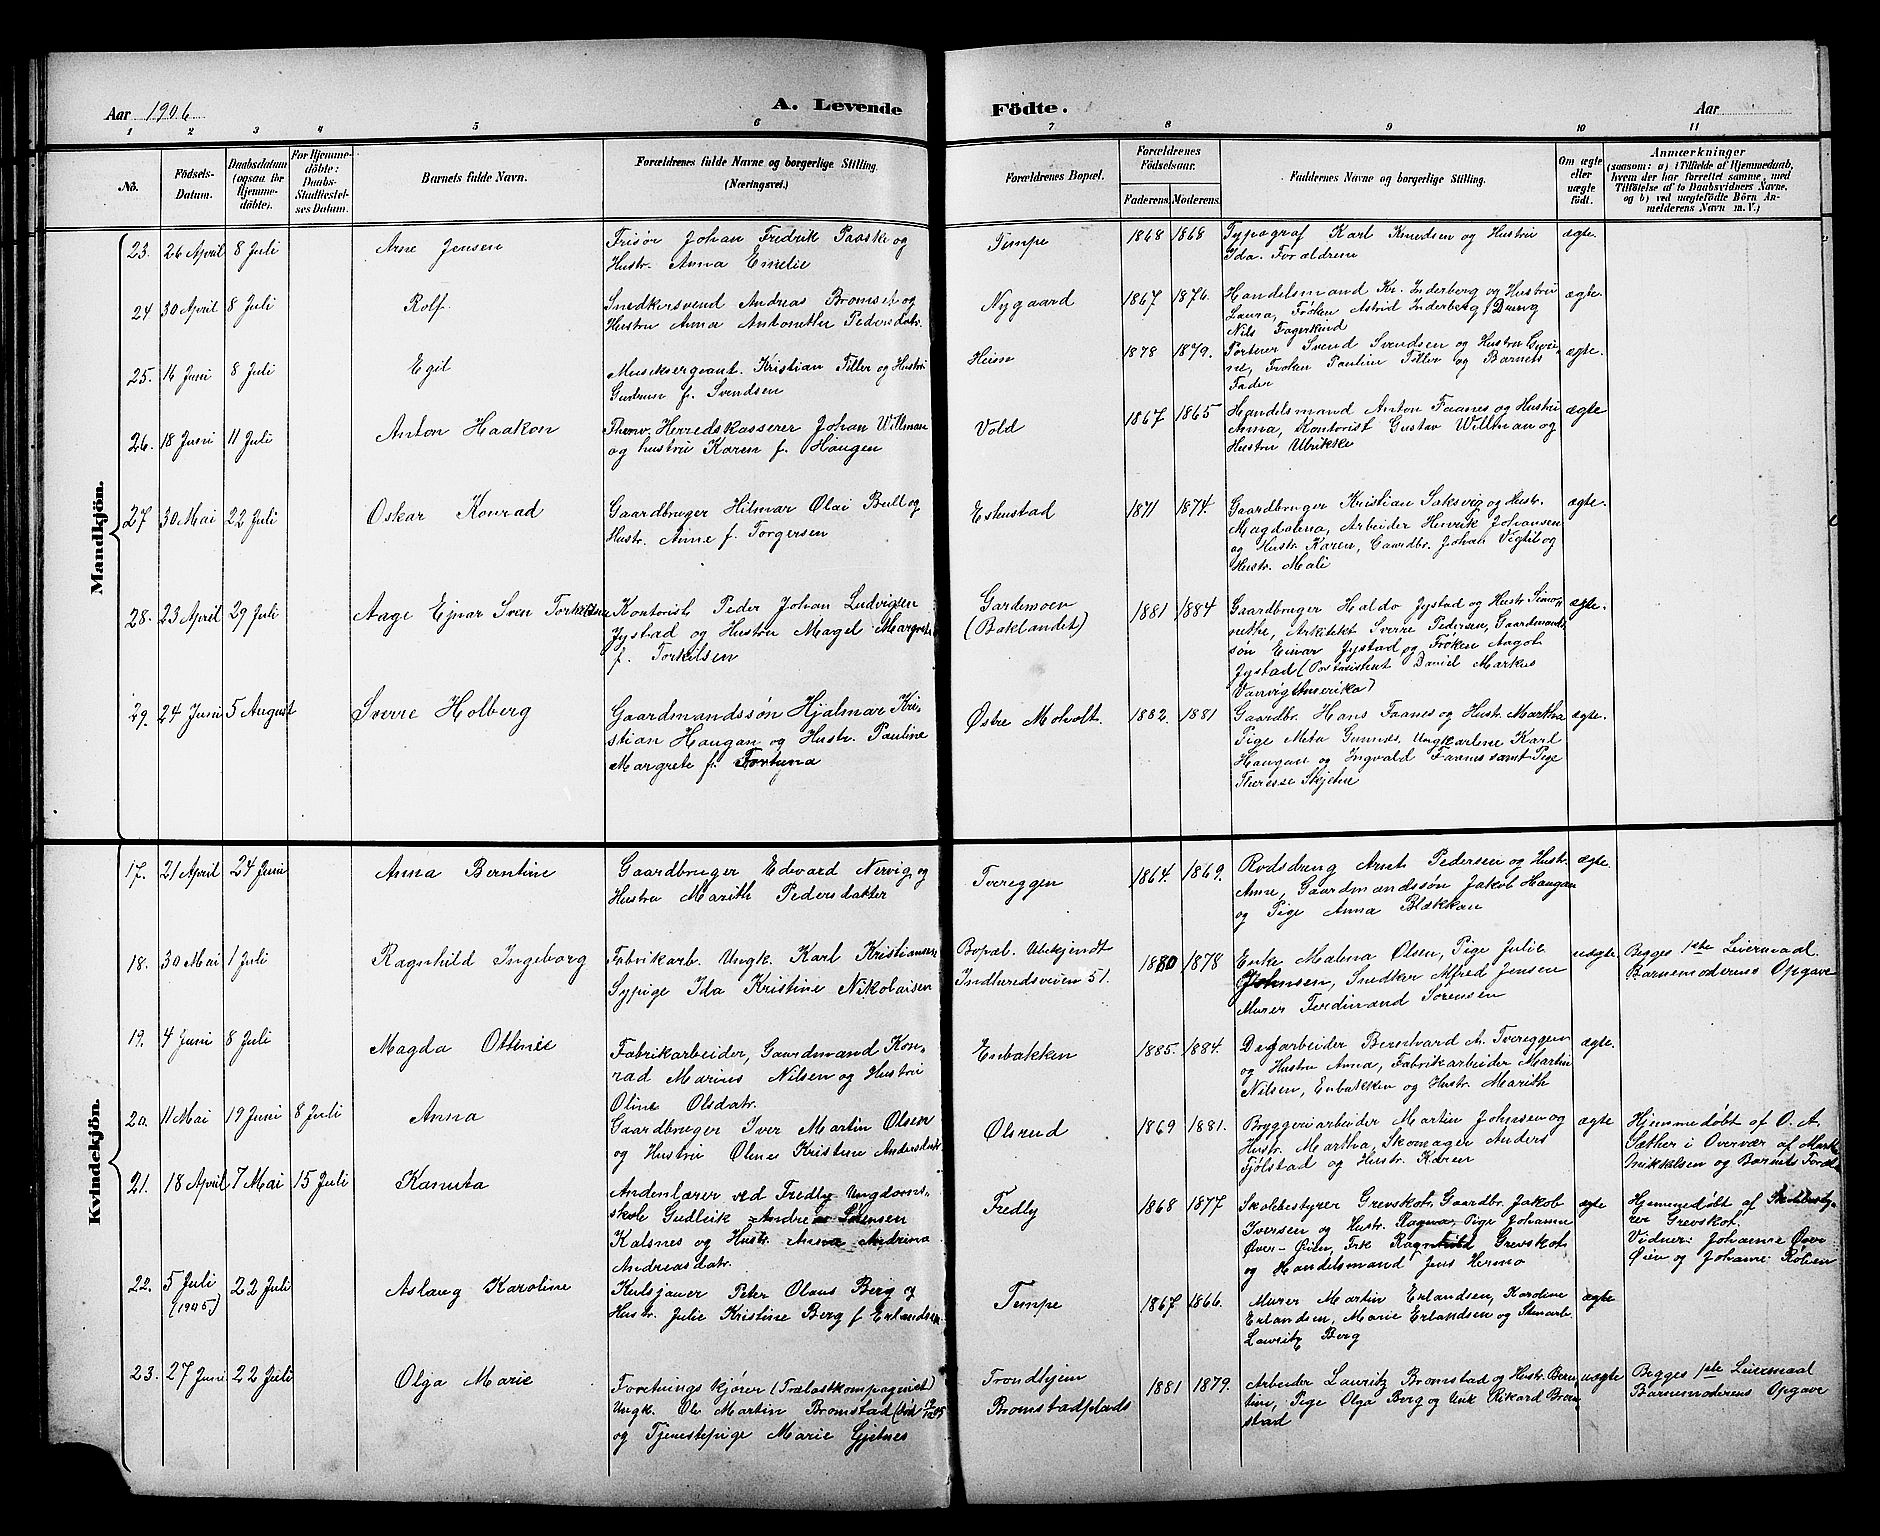 Aar 1906
A. Levende Födte.
Aar
1 2 3 4 5 6 7 8 9 10 11
No.
Födsels-
Datum.
Daabsdatum
(ogsaa for
Hjemme-
döbte).
For Hjemme-
döbte:
Daabs-
Stadfæstel-
ses Datum.
Barnets fulde Navn.
Forældrenes fulde Navne og borgerlige Stilling.
(Næringsvei.)
Forældrenes Bopæl.
Forældrenes
Födselsaar.
Faderens. Moderens.
Faddernes Navne og borgerlige Stilling.
Om ægte
eller
uægte
födt.
Anmærkninger
(saasom: a) i Tilfælde af Hjemmedaab,
hvem der har forrettet samme, med
Tilföielse af to Daabsvidners Navne,
og b) ved uægtefödte Börn An-
melderens Navn m. V.)
Mandkjön.
23. 26 April 8 Juli
Arne Jensen
Frisør Johan Fredrik Paaske og
Hustr. Anna Emelie
Tempe
1868 1868
Typograf Karl Knudsen og Hustru
Ida. Forældrene
ægte.
24 30 April 8 Juli
Rolf.
Snedkersvend Andreas Bromset og
Hustru Anna Antonette Pedersdatr.
Nygaard
1867 1876.
Handelsmand Kr. Inderberg og Hustru
Laura, Frøken Astrid Inderberg, Dreng
Nils Fagerlund
ægte.
25. 14 Juni 8 Juli
Egil
Musiksergeant. Kristian Tiller og Hustru
Gudrun f. Svendsen
Heim
1878 1879.
Portører Svend Svendsen og Hustru
Frøken Pauline Tiller og Barnets
Fader
ægte.
26. 18 Juni 11 Juli
Anton Haakon
Herredskasserer Johan Willman
og hustru Karen f. Haugen
Vold
1867 1865
Handelsmand Anton Faanes og Hustru
Anna, Kontorist Gustav Willman og
Hustru Ulrikke
ægte
27 30 Mai 22 Juli
Oskar Konrad
Gaardbruger Hilmar Olai Bull og
Hustr. Anne f. Torgersen
Eskustad
1871 1874.
Gaardbruger Kristian Saksvig og Hustr.
Magdalena, Arbeider Henrik Johansen
og Hustr. Karen, Gaardbr. Johan Vigtil og
Hustr. Mali
ægte.
28. 23 April 29 Juli
Aage Ejnar Sven Torkilsen
Kontorist Peder Johan Ludvigsen
Jystad og Hustru Magel Margrete
f. Torkilsen
Gardemoen
(Baklandet)
1881 1884
Gaardbruger Haldo Jystad og Hustr. Simo-
nethe, Arkitekt Sverre Pedersen, Gaardmands-
søn Einar Jystad og Frøken Aagot
Jystad (Postassistent David Markus
Vanvig Amerika)
ægte.
29. 24 Juni 5 August
Sverre Holberg
Gaardmandssøn Hjalmar Kri-
stian Haugan og Hustr. Pauline
Margrete f. Fortuna
Østre Moholt.
1882. 1881
Gaardbr. Hans Faanes og Hustr. Martha
Pige Meta Gunnes, Ungkarlene Karl
Haugan og Ingvald Faanes samt Pige
Therese Skjetne
ægte.
Kvindekjön.
17. 21 April 24 Juni
Anna Berntine
Gaardbruger Edvard Nervig og
Hustru Marith Pedersdatter
Tvereggen
1864. 1869.
Rodsdreng Arnt Pedersen og Hustr.
Anne, Gaardmandssøn Jakob Haugan
og Pige Anna Blækkan
ægte.
18. 30 Mai 1 Juli
Ragnhild Ingeborg
Fabrikarb. Ungk. Karl Kristiansen
Sypige Ida Kristine Nikolaisen
Bopæl. Ubekjendt
Indherredsveien 51.
1880 1878
Enke Malena Olsen, Pige Julie
Johnsen, Snedker Alfred Jensen
Murer Ferdinand Sørensen
uægte.
Begges 1ste Leiermaal
Barnemoderens Opgave
19. 4 Juni 8 Juli
Magda Othinie
Fabrikarbeider, Gaardmand Kon-
rad Marius Nilsen og Hustru
Oline Olsdatr.
Enbakken
1885. 1884.
Dagarbeider Berntvard A. Tvereggen
og Hustru Anna, Fabrikarbeider Martin
Nilsen, Enbakken og Hustr. Marith
ægte.
20. 11 Mai 19 Juni 8 Juli
Anna
Gaardbruger Iver Martin Olsen
og Hustru Oline Kristine Andersdatr.
Ølsrud
1869 1881.
Bryggeriarbeider Martin Johnsen og
Hustr. Martha, Skomager Anders
Fjølstad og Hustr. Karen
ægte
Hjemmedøbt af O. A.
Sæther i Overvær af Marit
Mikkelsen og Barnets Foræl
21. 18 April 7 Mai 15 Juli
Kanuta
Andenlærer ved Fredly Ungdoms-
skole Gudleik Andreas Sørensen
Kalsnes og Hustr. Anna Andrina
Andreasdatr.
Fredly
1868 1877
Skolebestyrer Grevskot, Gaardbr. Jakob
Iversen og Hustr. Ragna, Pige Johanne
Øver-Øien, Frk Ragnhild Grevskot
og Handelsmand Jens Hermo
ægte
Hjemmedøbt af Skolebesty-
rer Grevskot.
Vidner: Johanne Øver
Øien og Johanne Rølven
22. 5 Juli
(1905)
22 Juli
Aslaug Karoline
Kulsjauer Peter Olaus Berg og
Hustr. Julie Kristine Berg f Erlandsen
Tempe
1867 1866.
Murer Martin Erlandsen, Karoline
Erlandsen, Marie Erlandsen og Stenarb.
Lauritz Berg
ægte
23. 27 Juni 22 Juli
Olga Marie
Forretningskjører (Trælastkompagniet)
Ungk. Ole Martin Bromstad
og Tjenestepige Marie Gjetnes
Trondhjem
Bromstadplads
1881 1879.
Arbeider Lauritz Bromstad og Hustr. Bern-
tine, Pige Olga Berg og Unk Rikard Brom-
stad
uægte
Begges 1ste Leiermaal
Barnemoderens Opgave